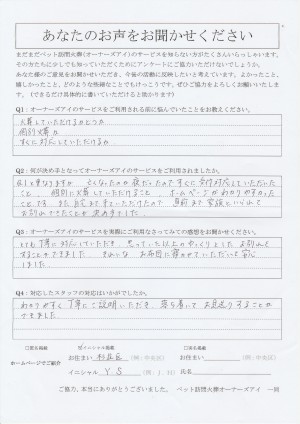 あなたのお声をお聞かせください
まだまだペット訪問火葬(オーナーズアイ)のサービスを知らない方がたくさんいらっしゃいます。
その方たちに少しでも知っていただくためにアンケートにご協力いただけないでしょうか。
あなた様のご意見をお聞かせいただき、今後の活動に反映したいと考えています。よかったこと、
嬉しかったこと、どのような些細なことでもけっこうです。ぜひご協力をよろしくお願いいたしま
す。(できるだけ具体的に書いていただけると助かります)
Q1:オーナーズアイのサービスをご利用される前に悩んでいたことをお教えください。
火葬していただけるかどうか
個別火葬か
すぐに対応していただけるか
Q2:何が決め手となってオーナーズアイのサービスをご利用されましたか。
なくなったのが夜だったのですぐに受付対応していただいた
こと、個別に火葬していただけること、ホームページがわかりやすかった
こと です。また、自宅まで来ていただけたので 直前まで家族といられて
お別れできたことが決め手でした。
Q3:オーナーズアイのサービスを実際にご利用なさってみての感想をお聞かせください。
とても丁寧に対応していただき、思っていた以上のゆっくりとしたお別れを
することができました。きれいな お布団に寝かせていただいて安心
しました。
Q4:対応したスタッフの対応はいかがでしたか。
わかりやすく 丁寧に ご説明いただき、落ち着いて お見送りすることが
できました。
□匿名掲載
☑イニシャル掲載
□実名掲載
ホームページでご紹介
お住まい 杉並区 (例:中央区)
お住まい (例:中央区)
イニシャル Y.S (例:J.H)
氏名
ご協力、本当にありがとうございました。 ペット訪問火葬オーナーズアイ 一同